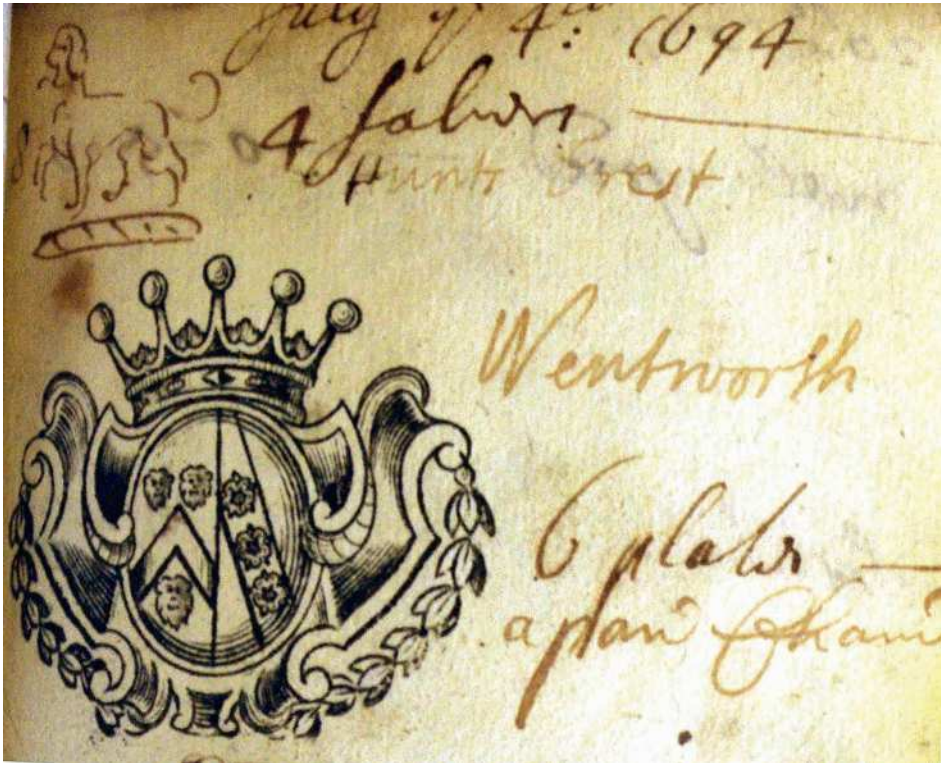 July ye 4th: 1694
4 Salvers
Hunts Crest
Wentworth
6 plates
a pair